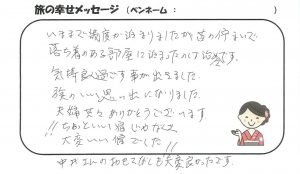 旅の幸せメッセージ (ペンネーム : )
いままで幾度か泊まりましたが昔の佇まいで
落ち着のある部屋に泊まったのは初めてです。
気持良く過ごす事が出来ました。
旅のいい思い出になりました。
夫婦共々ありがとうございます。
!!ちょっといい宿じゃなくて
大変いい宿でした!!
さんのおもてなしも大変良かったです。